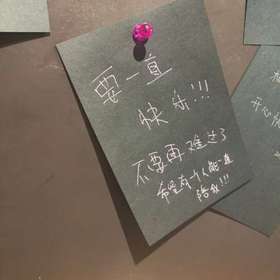 要一直
快乐!!!
不要再难过了
希望有个人能一直
陪我!!!
开心快